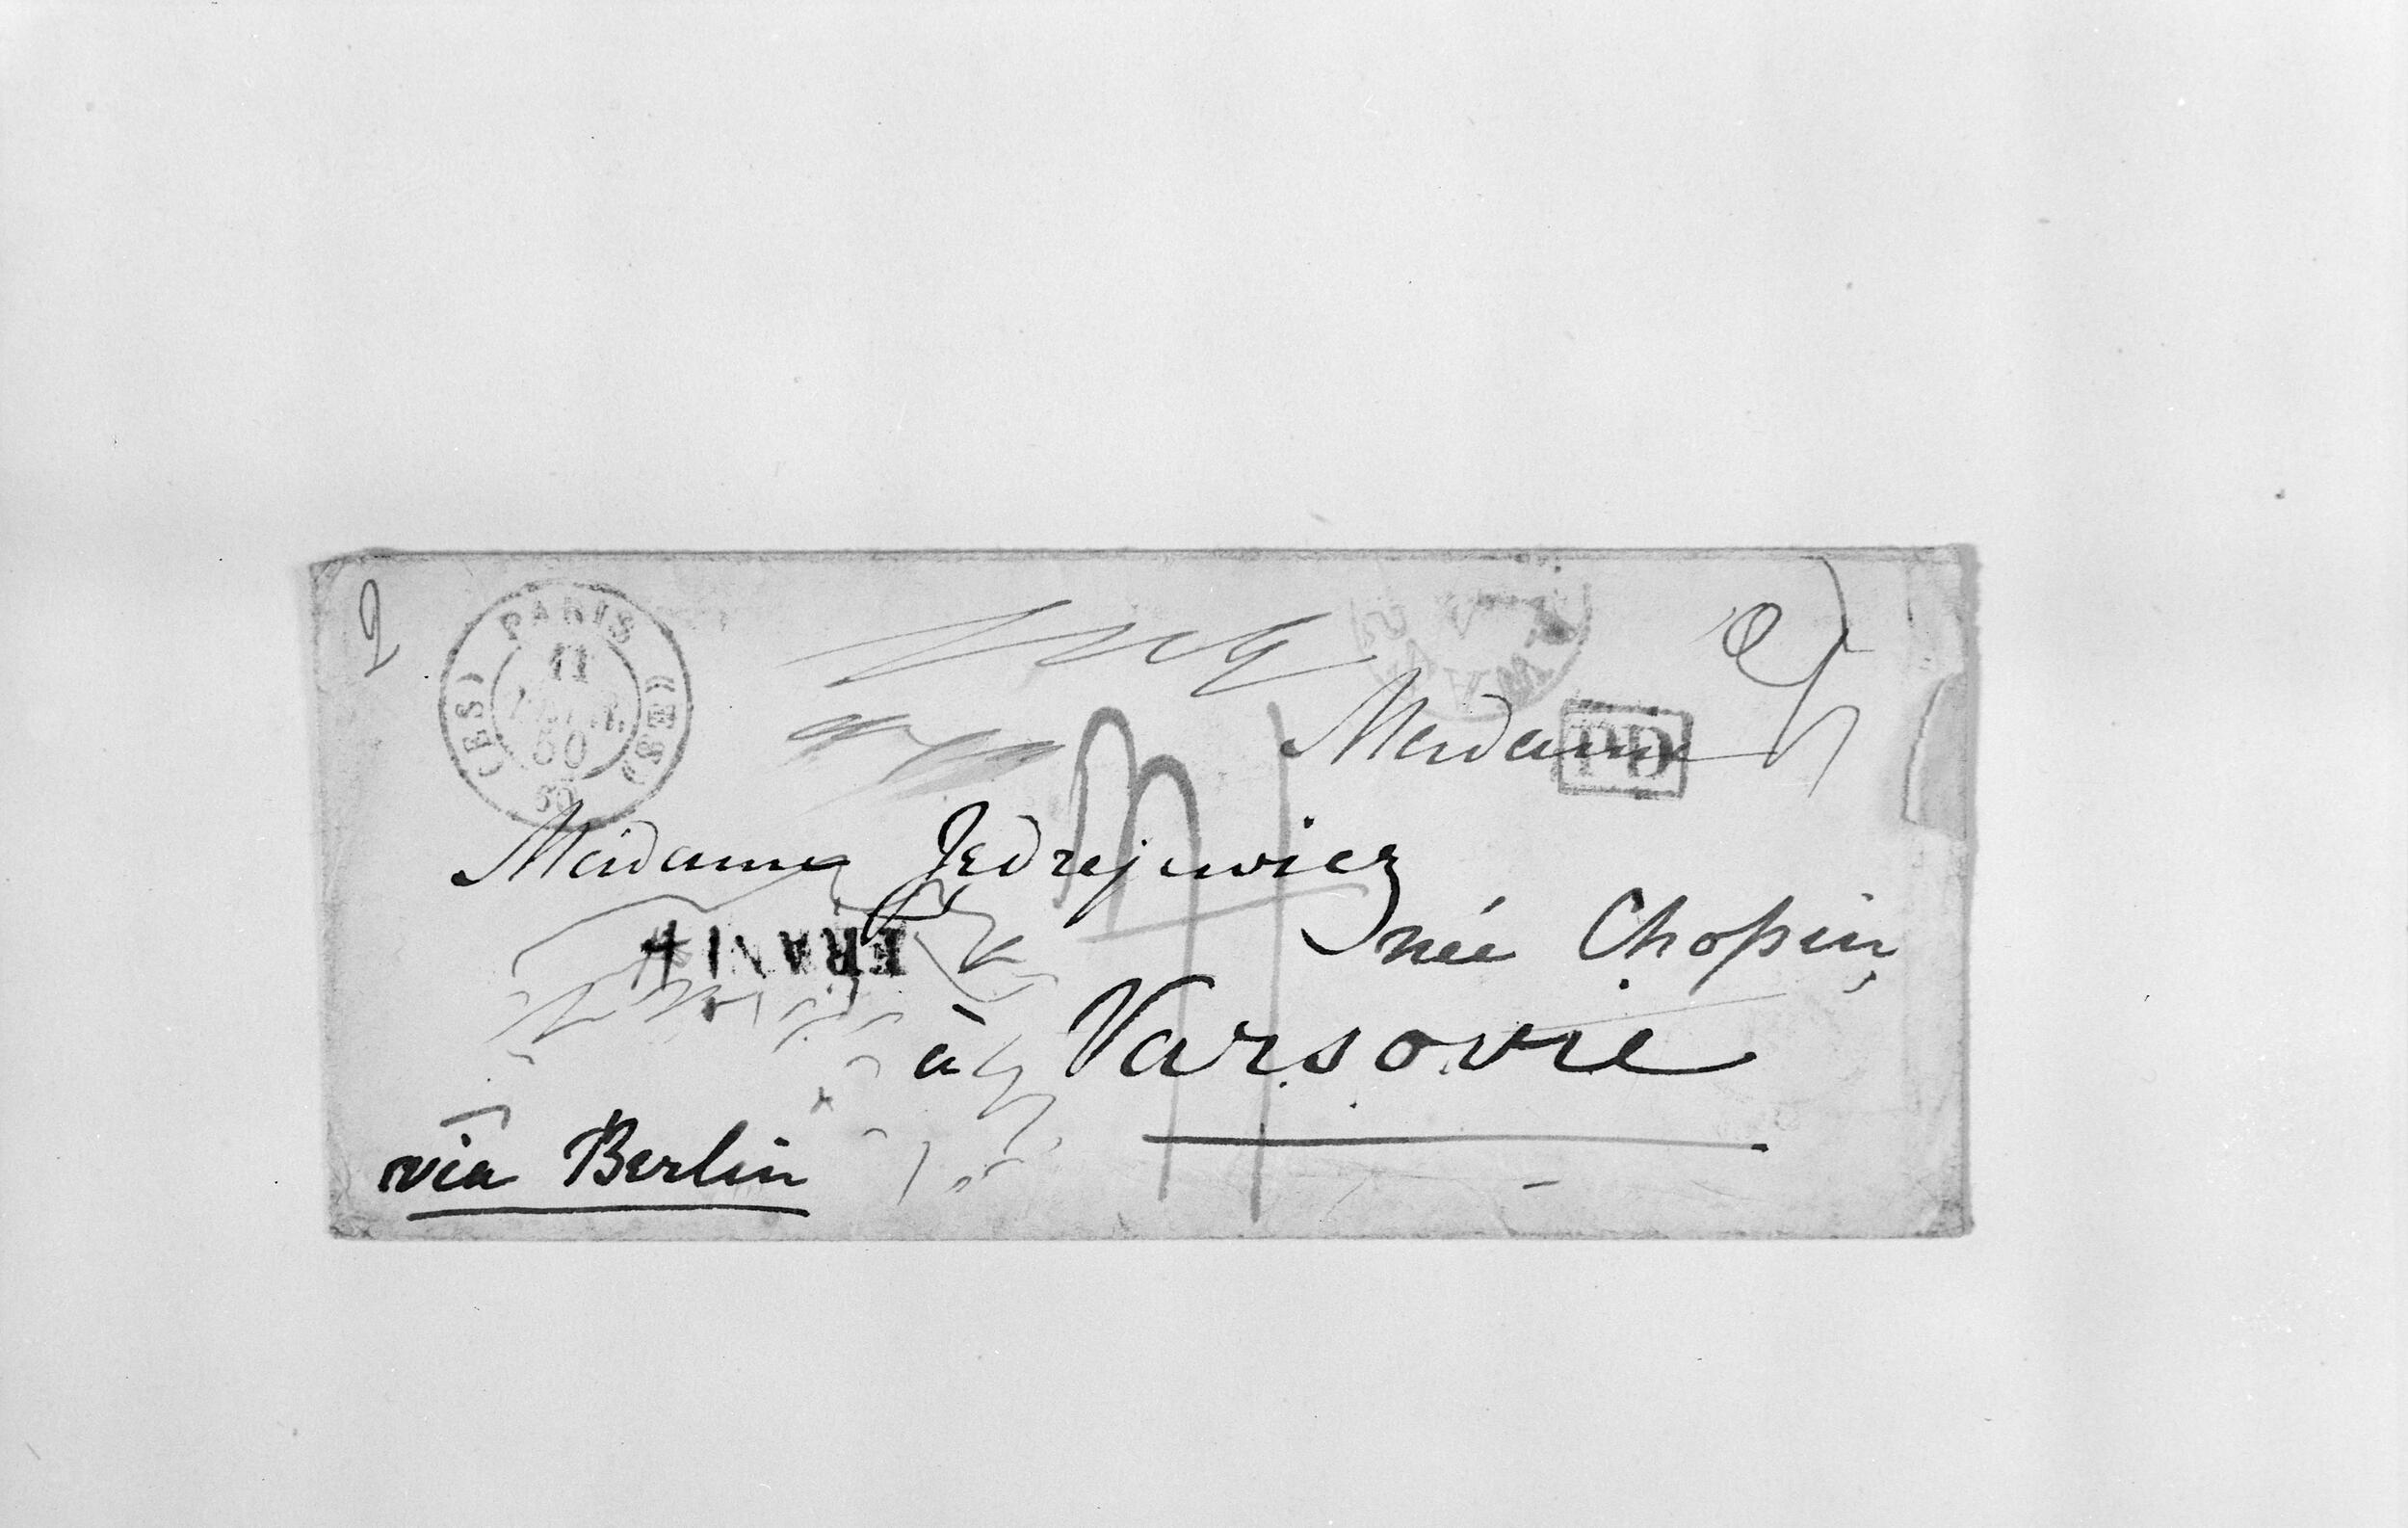 2
PARIS
11
60
60
PD
Madame
Madame Jedrejewicz
née Chopin
à Varsovie
via Berlin